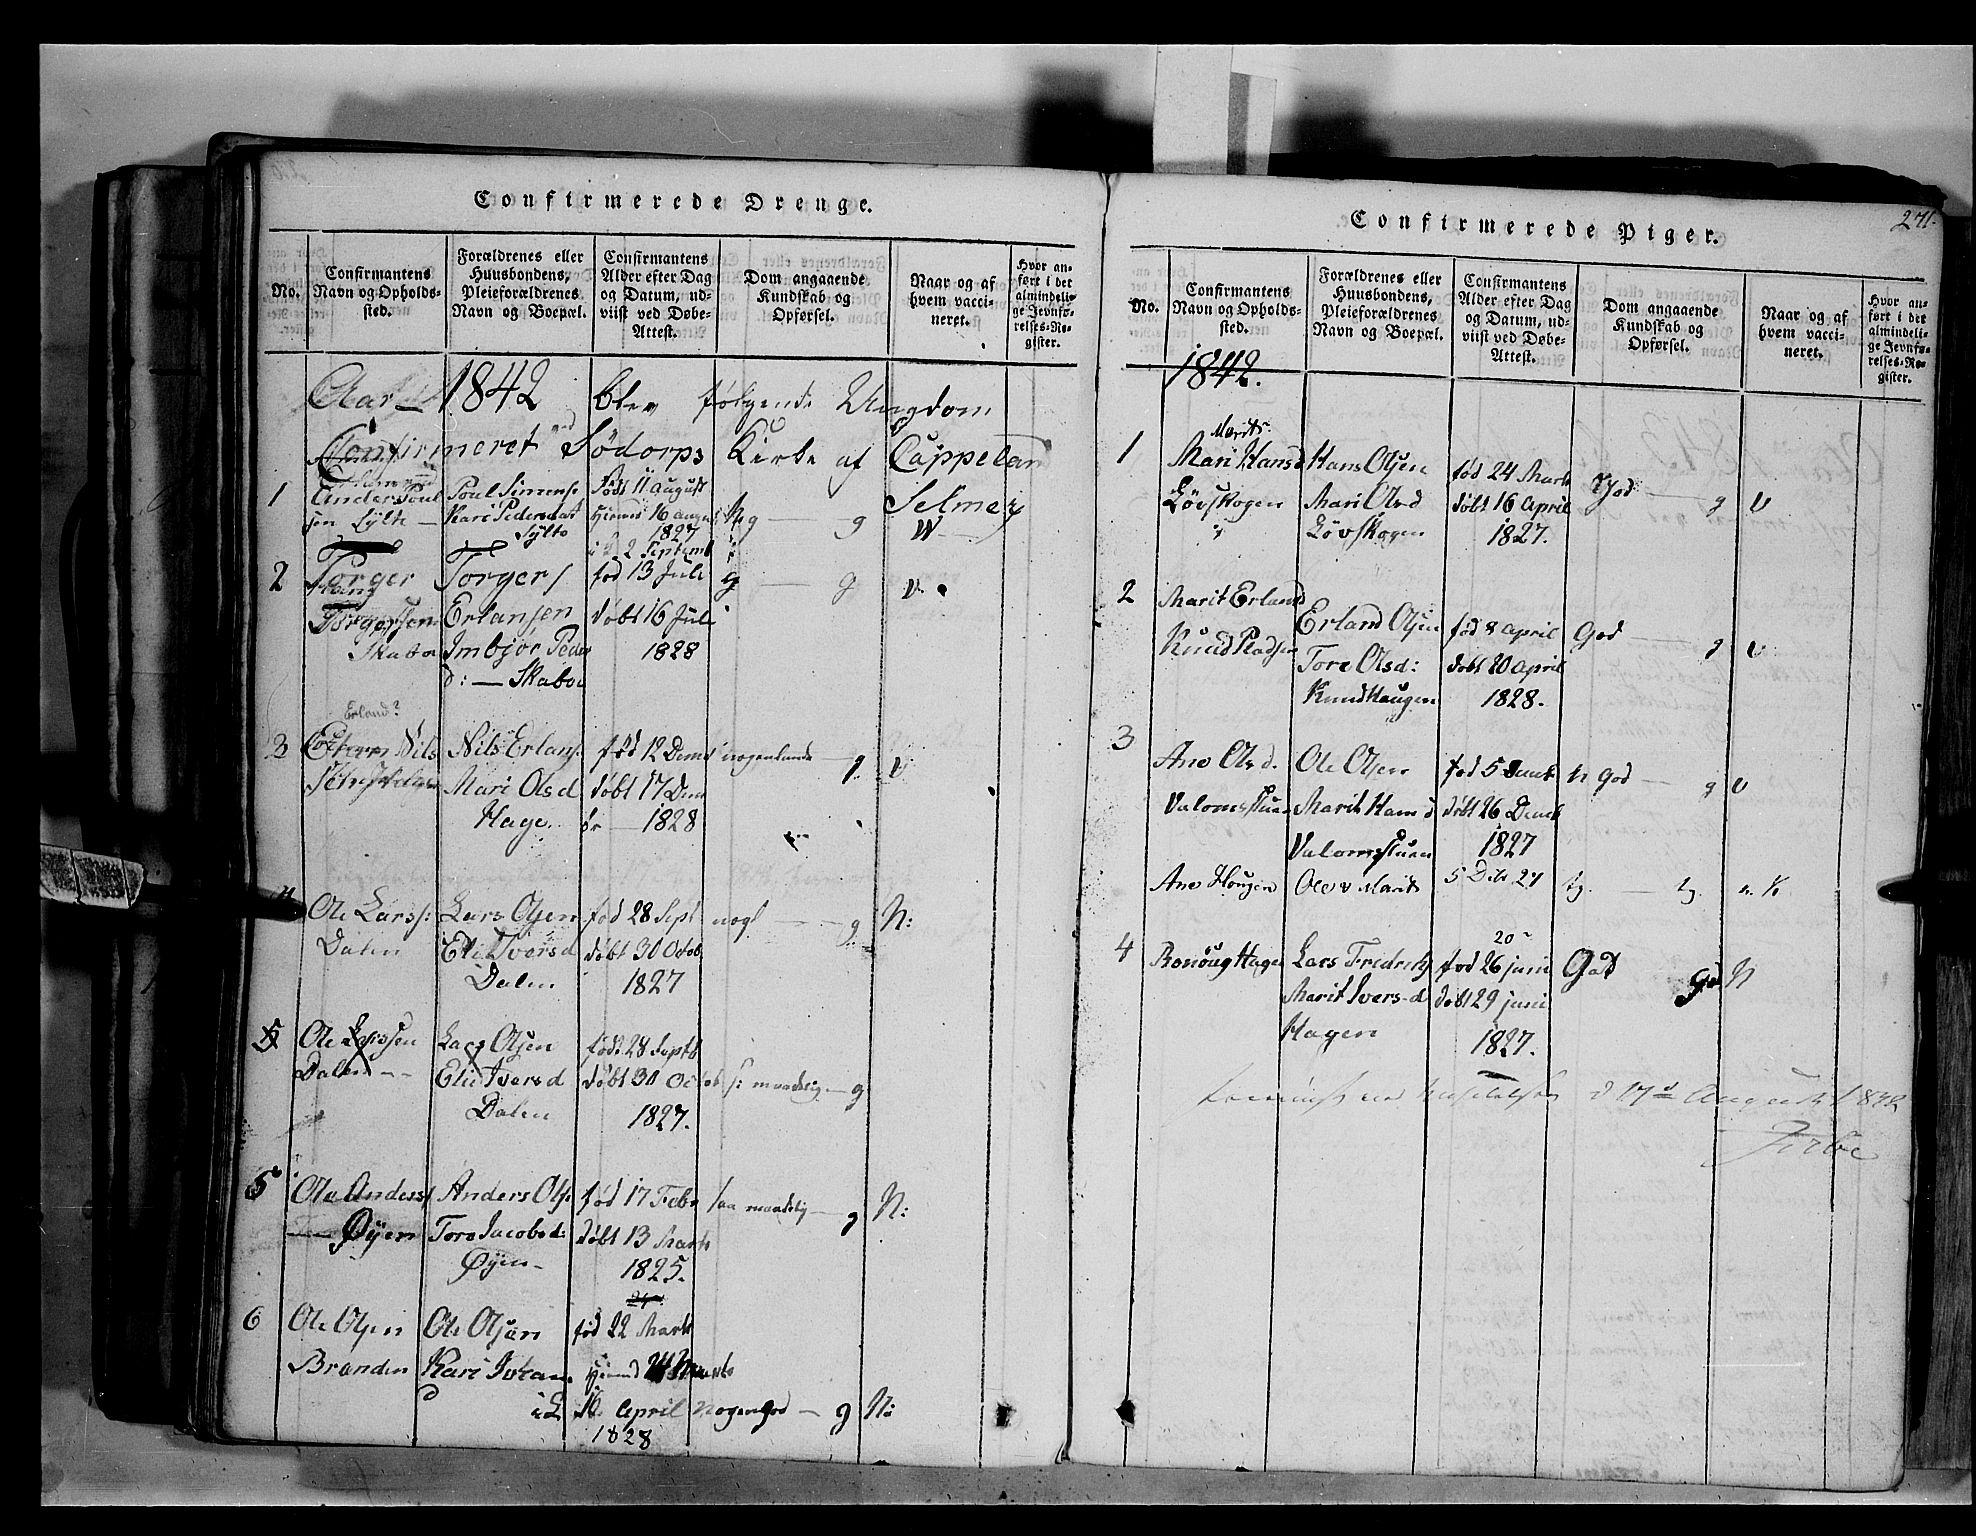 Confirmerede Drenge.
No.
Confirmantens
Navn og Opholds-
sted.
Forældrenes eller
Huusbondens,
Pleieforældrenes
Navn og Boepæl.
Confirmantens
Alder efter Dag
og Datum, ud-
viist ved Døbe-
Attest.
Dom angaaende
Kundskab og
Opførsel.
Naar og af
hvem vacci-
neret.
Hvor an-
ført i det
almindeli-
ge Jevnfø-
relses-Re-
gister.
Aar 1842 blev følgende Ungdom
Confirmeret ved Södorps Kirke af Cappelan
Selmer
1
Anders Poul
sen Sylte
Poul Simens
Kari Pedersdat
Sylte
Födt 11 August
Hiemd 16 August
1827
i K 2 Septemb
g
2
Torger
Torgersen
Skaboe
Torgers
Erlansen
Imbjør Peders
d: — Skaboe
fød 13 Juli
døbt 16 Juli
1828
g — g
v.
Erland?
3
Nils
Nils Erlans
Mari Olsd
Hage
fød 12 Decmb
døbt 17 Dem
1828
nogenlunde — g
v
4
Ole Larss:
Dalen
Lars Olsen
Eli Iversd
Dalen
fød 28 Sept
døbt 30 Octob
1827
nogl — g
N:
5
Ole Larssen
Dalen --
Lars Olsen
Eli Iversd
Dalen
født 28 Septb
døbt 30 Octob
1827.
s: maadelig — g
5
Ole Anders
Øyen
Anders Ols
Tore Jacobsd:
Øyen
fød 17 Febr
døbt 13 Marts
1825.
saa maadelig — g
N:
6
Ole Olsen
Branden
Ole Olsen
Kari Johan
fød 22 Marts
Hiemd 24 Marts
i K 16 April
1828
Nogengod — g
N:
271.
Confirmerede Piger.
No.
Confirmantens
Navn og Opholds-
sted.
Forældrenes eller
Huusbondens,
Pleieforældrenes
Navn og Boepæl.
Confirmantens
Alder efter Dag
og Datum, ud-
viist ved Døbe-
Attest.
Dom angaaende
Kundskab og
Opførsel.
Naar og af
hvem vacci-
neret.
Hvor an-
ført i det
almindeli-
ge Jevnfø-
relses-Re-
gister.
1842.
1
Marits
Mari Hansd
Løvskogen
Hans Olsen
Mari Olsd
Løvskogen
fød 24 Marts
døbt 16 April
1827.
God — g
v
2
Marit Erlansd
Erland Olsen
Tore Olsd:
Knudhaugen
fød 8 April
døbt 20 April
1828.
God — g
v
3
Ane Olsd.
Valomsstuen
Ole Olsen
Marit Hansd
Valomsstuen
fød 5 Decmb
døbt 26 Decmb
1827
n god — g
v
Ane Hougen
Ole v Marit
5 Dcbr 27
tg. — tg.
v. K
4
Rönnoug Hage
Lars Fredriks
Marit Iversd
Hagen
20
fød 26 juni
døbt 29 juni
1827.
God
god
N
d 17de August 1842